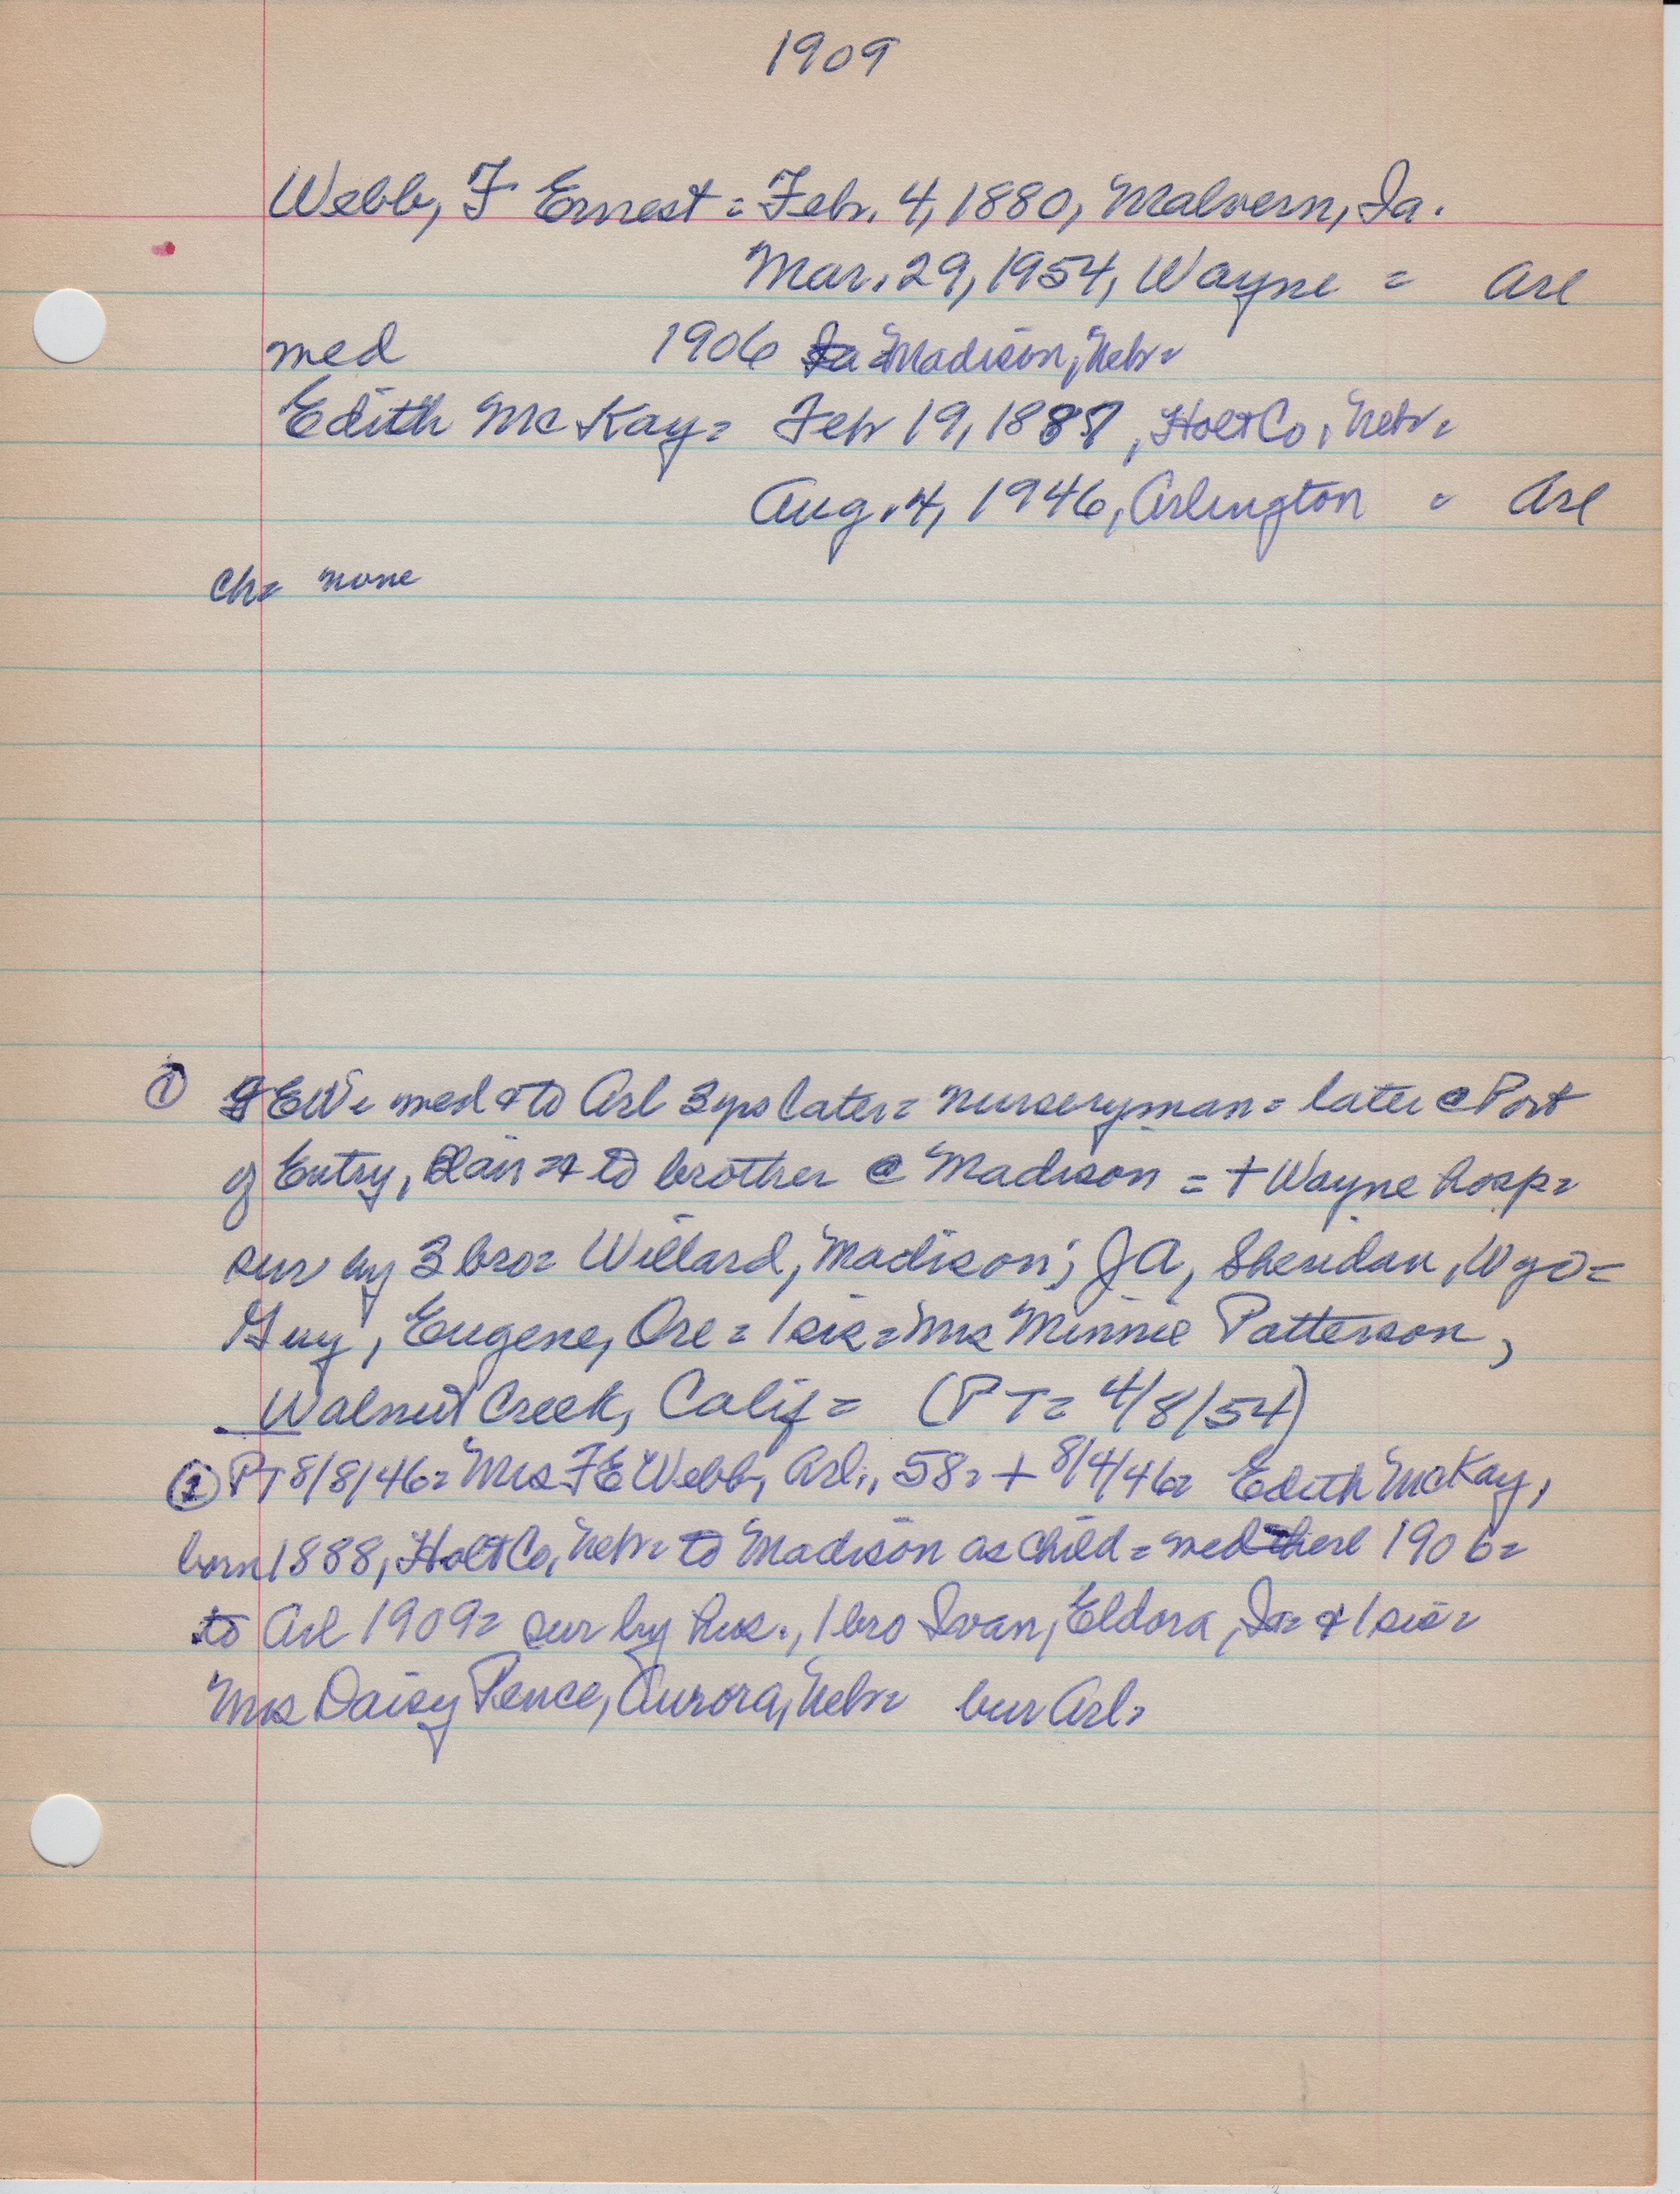 1909
Webb, F Ernest = Feb. 4, 1880, Malvern, Ia.
Mar. 29, 1954, Wayne = Arl
med 1906 Madison, Nebr=
Edith McKay= Feb 19, 1887, Holt Co, Nebr=
Aug. 4, 1946, Arlington = Arl
Ch= none
① FEW= med & to Arl 3 yrs later= nurseryman= later @ Port
of Entry, Blair & to brother @ Madison = + Wayne hosp=
sur by 3 bro= Willard, Madison; JA, Sheridan, Wyo=
Guy, Eugene, Ore = 1 sis= Mrs Minnie Patterson,
Walnut Creek, Calif= (PT= 4/8/54)
② PT 8/8/46= Mrs FE Webb, Arl., 58= + 8/4/46= Edith McKay,
born 1888, Holt Co, Nebr= to Madison as child = med there 1906=
to Arl 1909= sur by hus., 1 bro Ivan, Eldora, Ia= & 1 sis=
Mrs Daisy Pence, Aurora, Nebr= bur Arl=